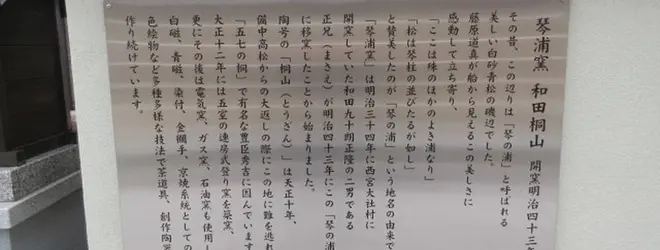 琴浦窯 和田桐山 開窯明治四十三
その昔、この辺りは「琴の浦」と呼ばれる
美しい白砂青松の磯辺でした。
藤原道真が船から見えるこの美しさに
感動して立ち寄り、
「ここは殊のほかのよき浦なり」
「松は琴柱の並びたるが如し」
と賛美したのが「琴の浦」という地名の由来で
「琴浦窯」は明治三十四年に西宮大社村に
開窯していた和田九十朗正隆の二男である
正兄(まさえ)が明治四十三年にこの「琴の浦
に移窯したことから始まりました。
陶号の「桐山(とうざん)」は天正十年、
備中高松からの大返しの際にこの地に難を逃れ
「五七の桐」で有名な豊臣秀吉に因んでいます
大正十二年には五室の連房式登り窯を築窯、
更にその後は電気窯、ガス窯、石油窯も使用し
白磁、青磁、染付、金襴手、京焼系統としての
色絵物など多種多様な技法で茶道具、創作陶
作り続けています。